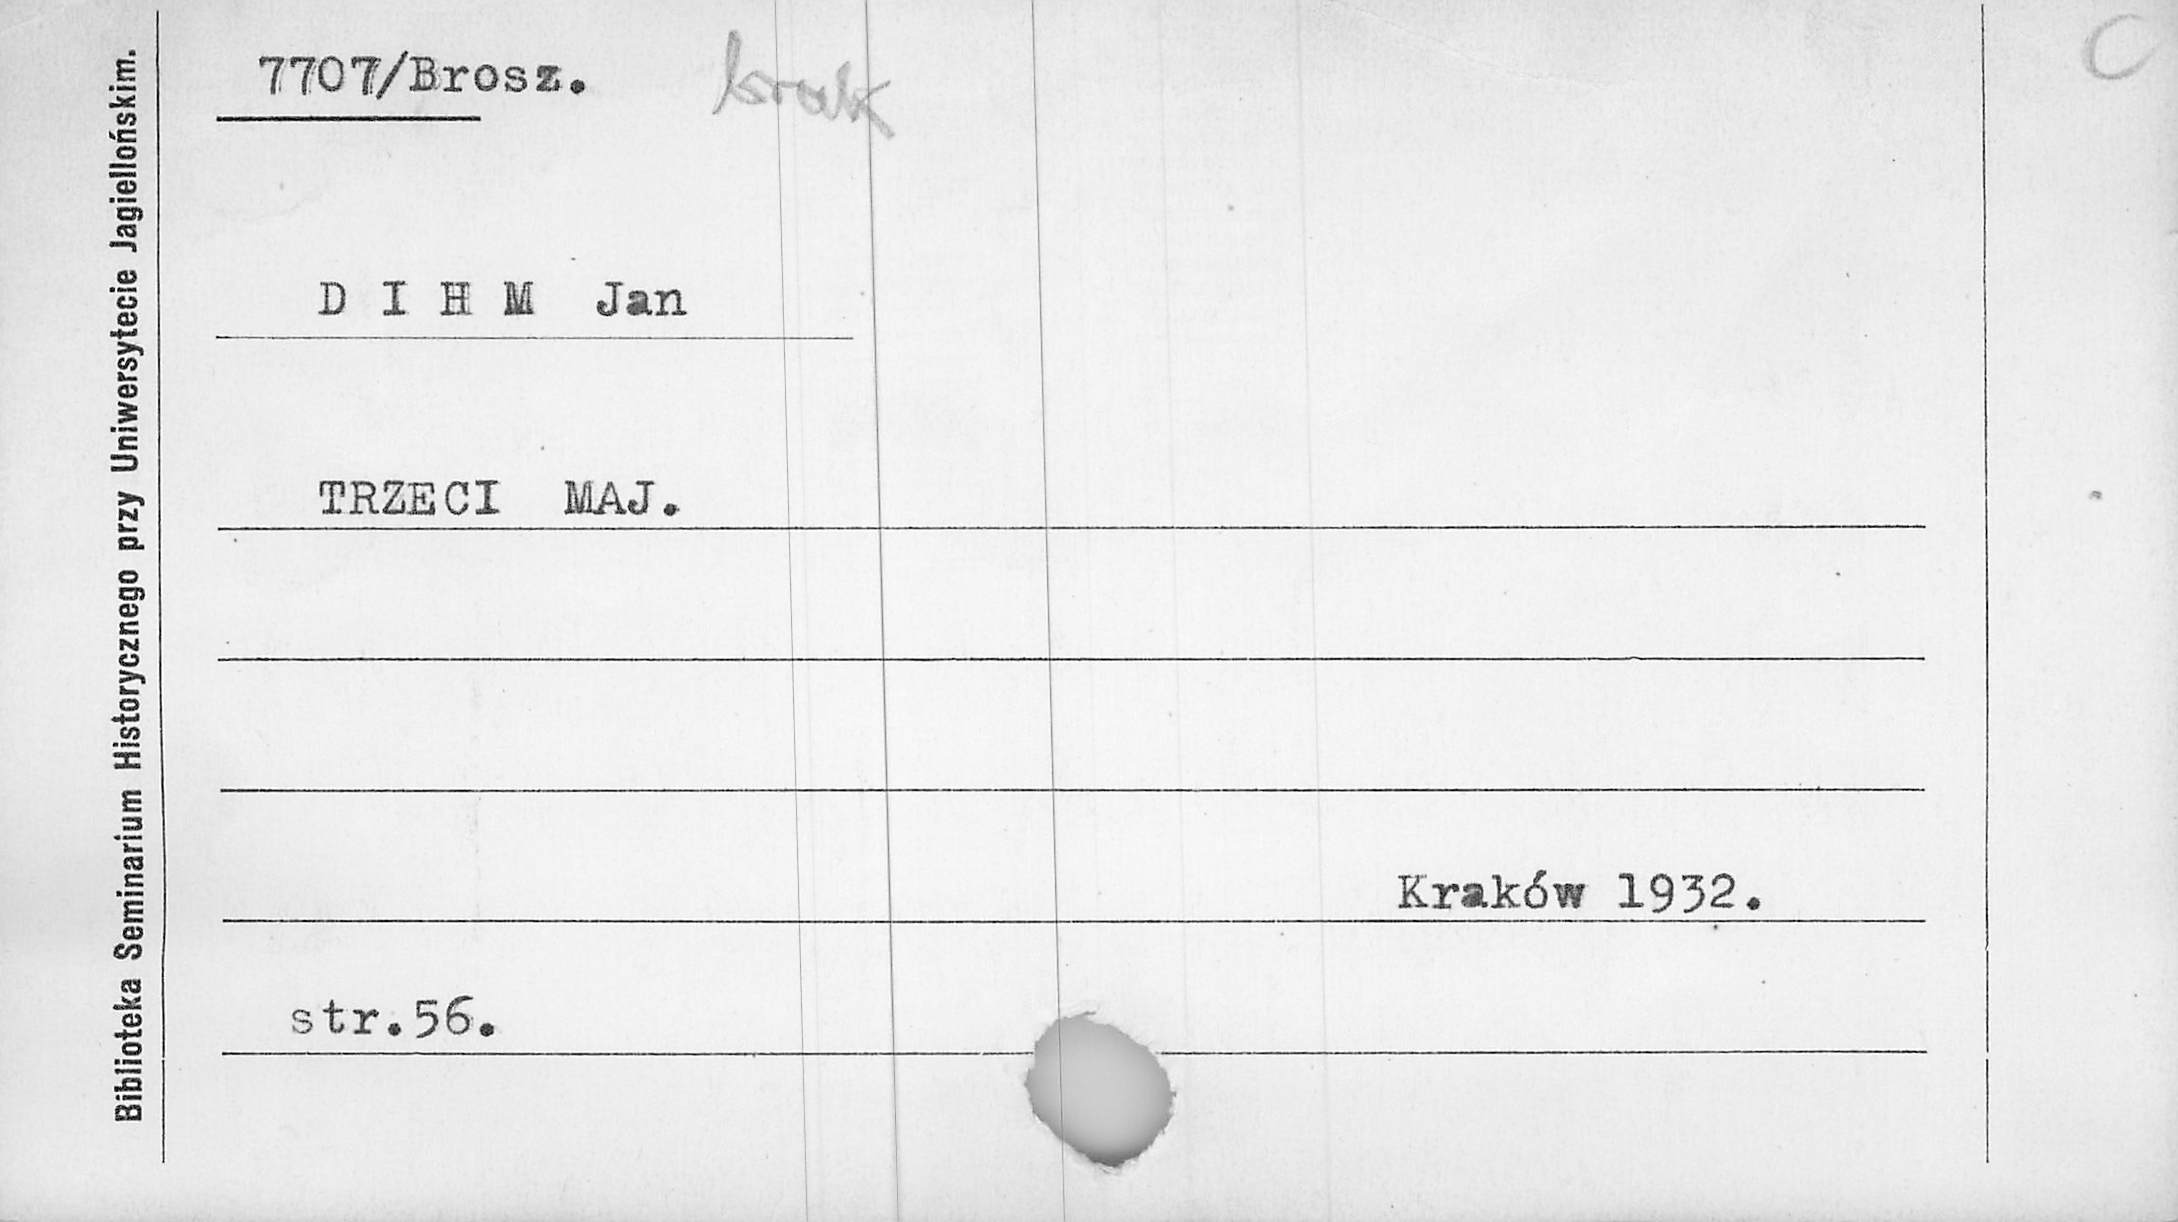 7707/Brosz. brak
C
D I H M Jan
TRZECI MAJ.
Kraków 1932.
str.56.
Biblioteka Seminarium Historycznego przy Uniwersytecie Jagiellońskim.